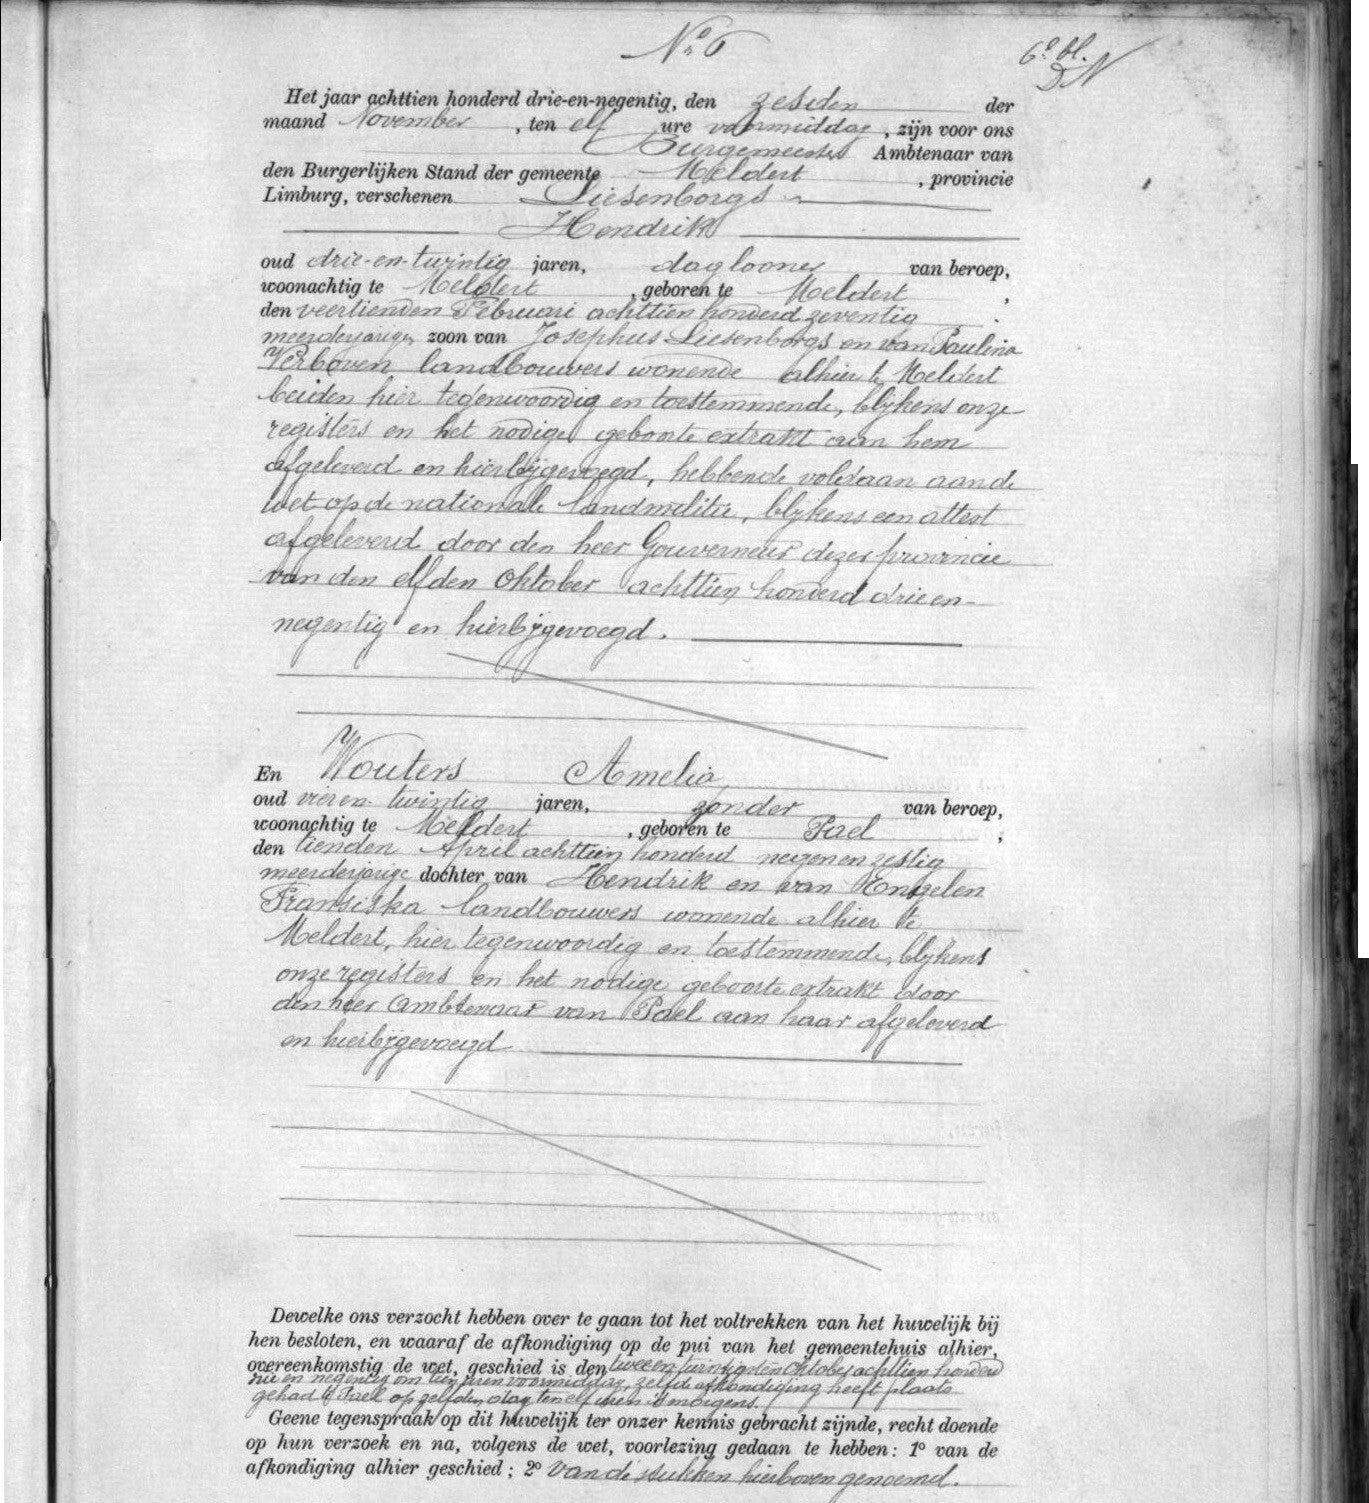 Nº 6
6e bl.
DN
Het jaar achttien honderd drie-en-negentig, den zesden der
maand November, ten elf ure voormiddag, zijn voor ons
Burgemeester Ambtenaar van
den Burgerlijken Stand der gemeente Meldert, provincie
Limburg, verschenen Liesenborgs
Hendrik
oud drie-en-twintig jaren, dagloner van beroep,
woonachtig te Meldert, geboren te Meldert,
den veertienden Februari achttien honderd zeventig
meerderjarigen zoon van Josephus Liesenborgs en van Paulina
Verboven landbouwers wonende alhier te Meldert
beiden hier tegenwoordig en toestemmende, blijkens onze
registers en het nodige geboorte extrakt aan hem
afgeleverd en hierbijgevoegd, hebbende voldaan aan de
wet op de nationale landmilitie, blijkens een attest
afgeleverd door den heer Gouverneur dezer provincie
van den elfden Oktober achttien honderd drie en-
negentig en hierbijgevoegd.
En Wouters Amelia
oud vier en twintig jaren, zonder van beroep,
woonachtig te Meldert, geboren te Pael,
den tienden April achttien honderd negen en zestig
meerderjarige dochter van Hendrik en van Engelen
Fransiska landbouwers wonende alhier te
Meldert, hier tegenwoordig en toestemmende, blijkens
onze registers en het nodige geboorte extrakt door
den heer Ambtenaar van Pael aan haar afgeleverd
en hierbijgevoegd
Dewelke ons verzocht hebben over te gaan tot het voltrekken van het huwelijk bij
hen besloten, en waaraf de afkondiging op de pui van het gemeentehuis alhier,
overeenkomstig de wet, geschied is den twee en twintigsten Oktober achttien honderd
drie en negentig om tien uren voormiddag, zelfde afkondiging heeft plaats
gehad te Pael op zelfden dag ten elf uren 's morgens.
Geene tegenspraak op dit huwelijk ter onzer kennis gebracht zijnde, recht doende
op hun verzoek en na, volgens de wet, voorlezing gedaan te hebben: 1º van de
afkondiging alhier geschied; 2º van de stukken hierboven genoemd.